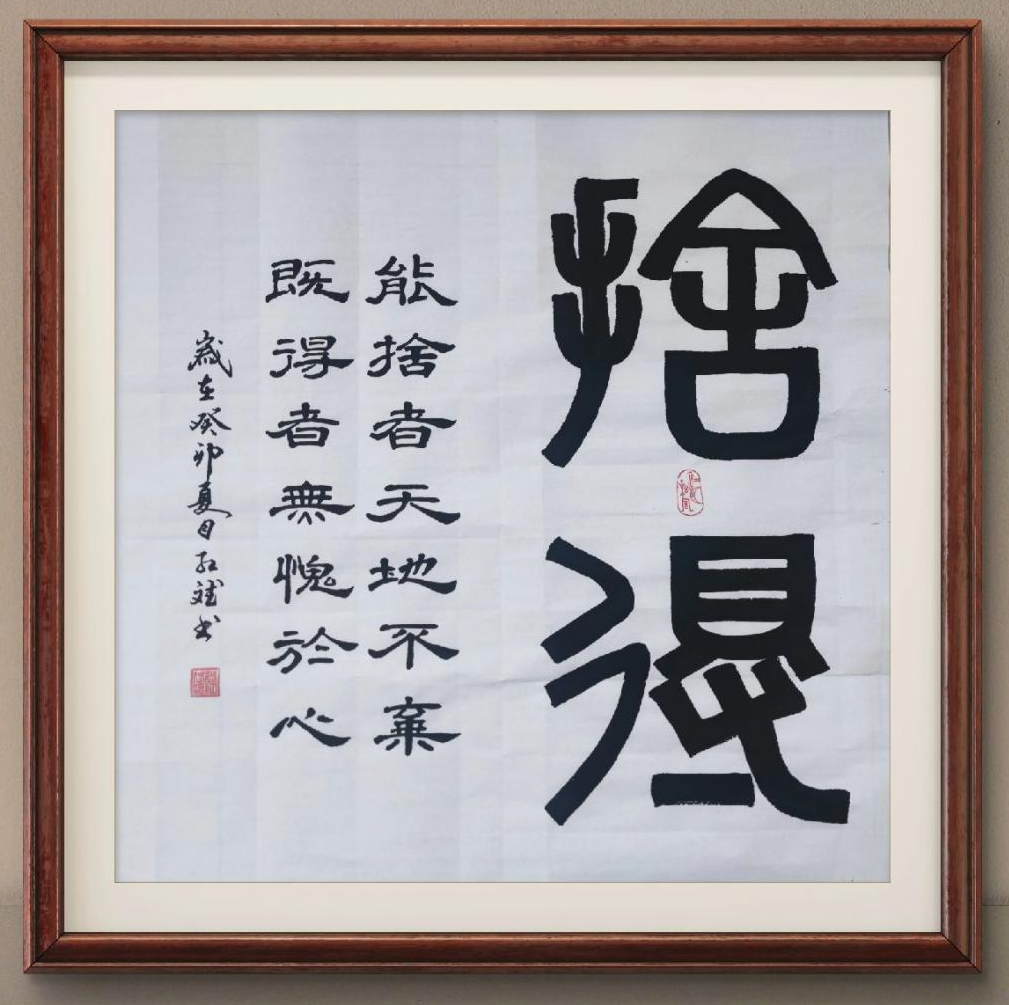 捨得
能捨者天地不棄
既得者無愧於心
歲在癸卯夏日紅斌書